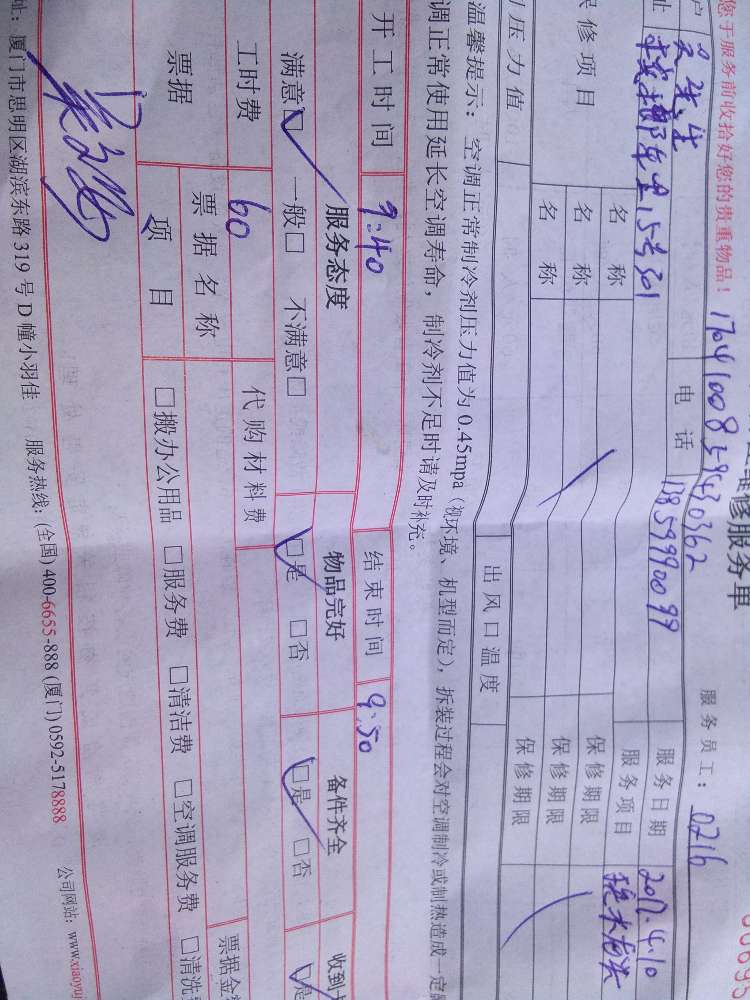 维修服务单
您于服务前收拾好您的贵重物品！
服务员工：0716
户
电话 13859990099
服务日期 2017.4.10
址 15号301
服务项目
保修项目
名称
保修期限
名称
保修期限
名称
保修期限
压力值
出风口温度
温馨提示：空调正常制冷剂压力值为0.45mpa（视环境、机型而定），拆装过程会对空调制冷或制热造成一定
调正常使用延长空调寿命，制冷剂不足时请及时补充。
开工时间 9:40 结束时间 9:50
服务态度 物品完好 备件齐全 收到
满意□ 一般□ 不满意□ □是 □否 □是 □否 □是
工时费 60 代购材料费
票据 票据名称 票据金
项目 □搬办公用品 □服务费 □清洁费 □空调服务费 □清洗
址：厦门市思明区湖滨东路319号D幢小羽佳 服务热线：(全国) 400-6655-888 (厦门) 0592-5178888 公司网站：www.xiaoyuj